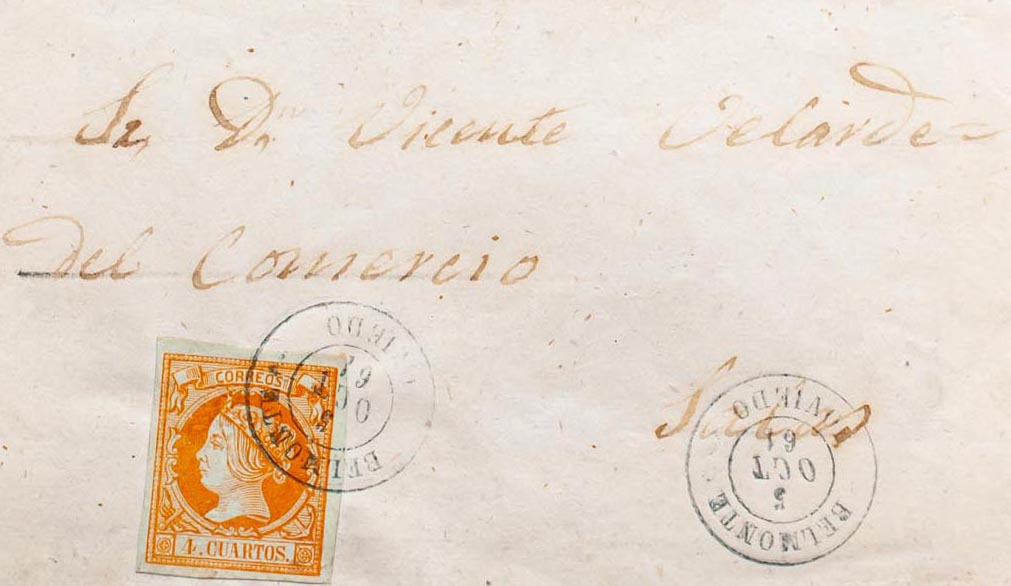 Sr. Dn. Vicente Velarde=
del Comercio
Salas
CORREOS
4. CUARTOS.
BELMONTE
5
OCT
61
OVIEDO
BELMONTE
5
OCT
61
OVIEDO